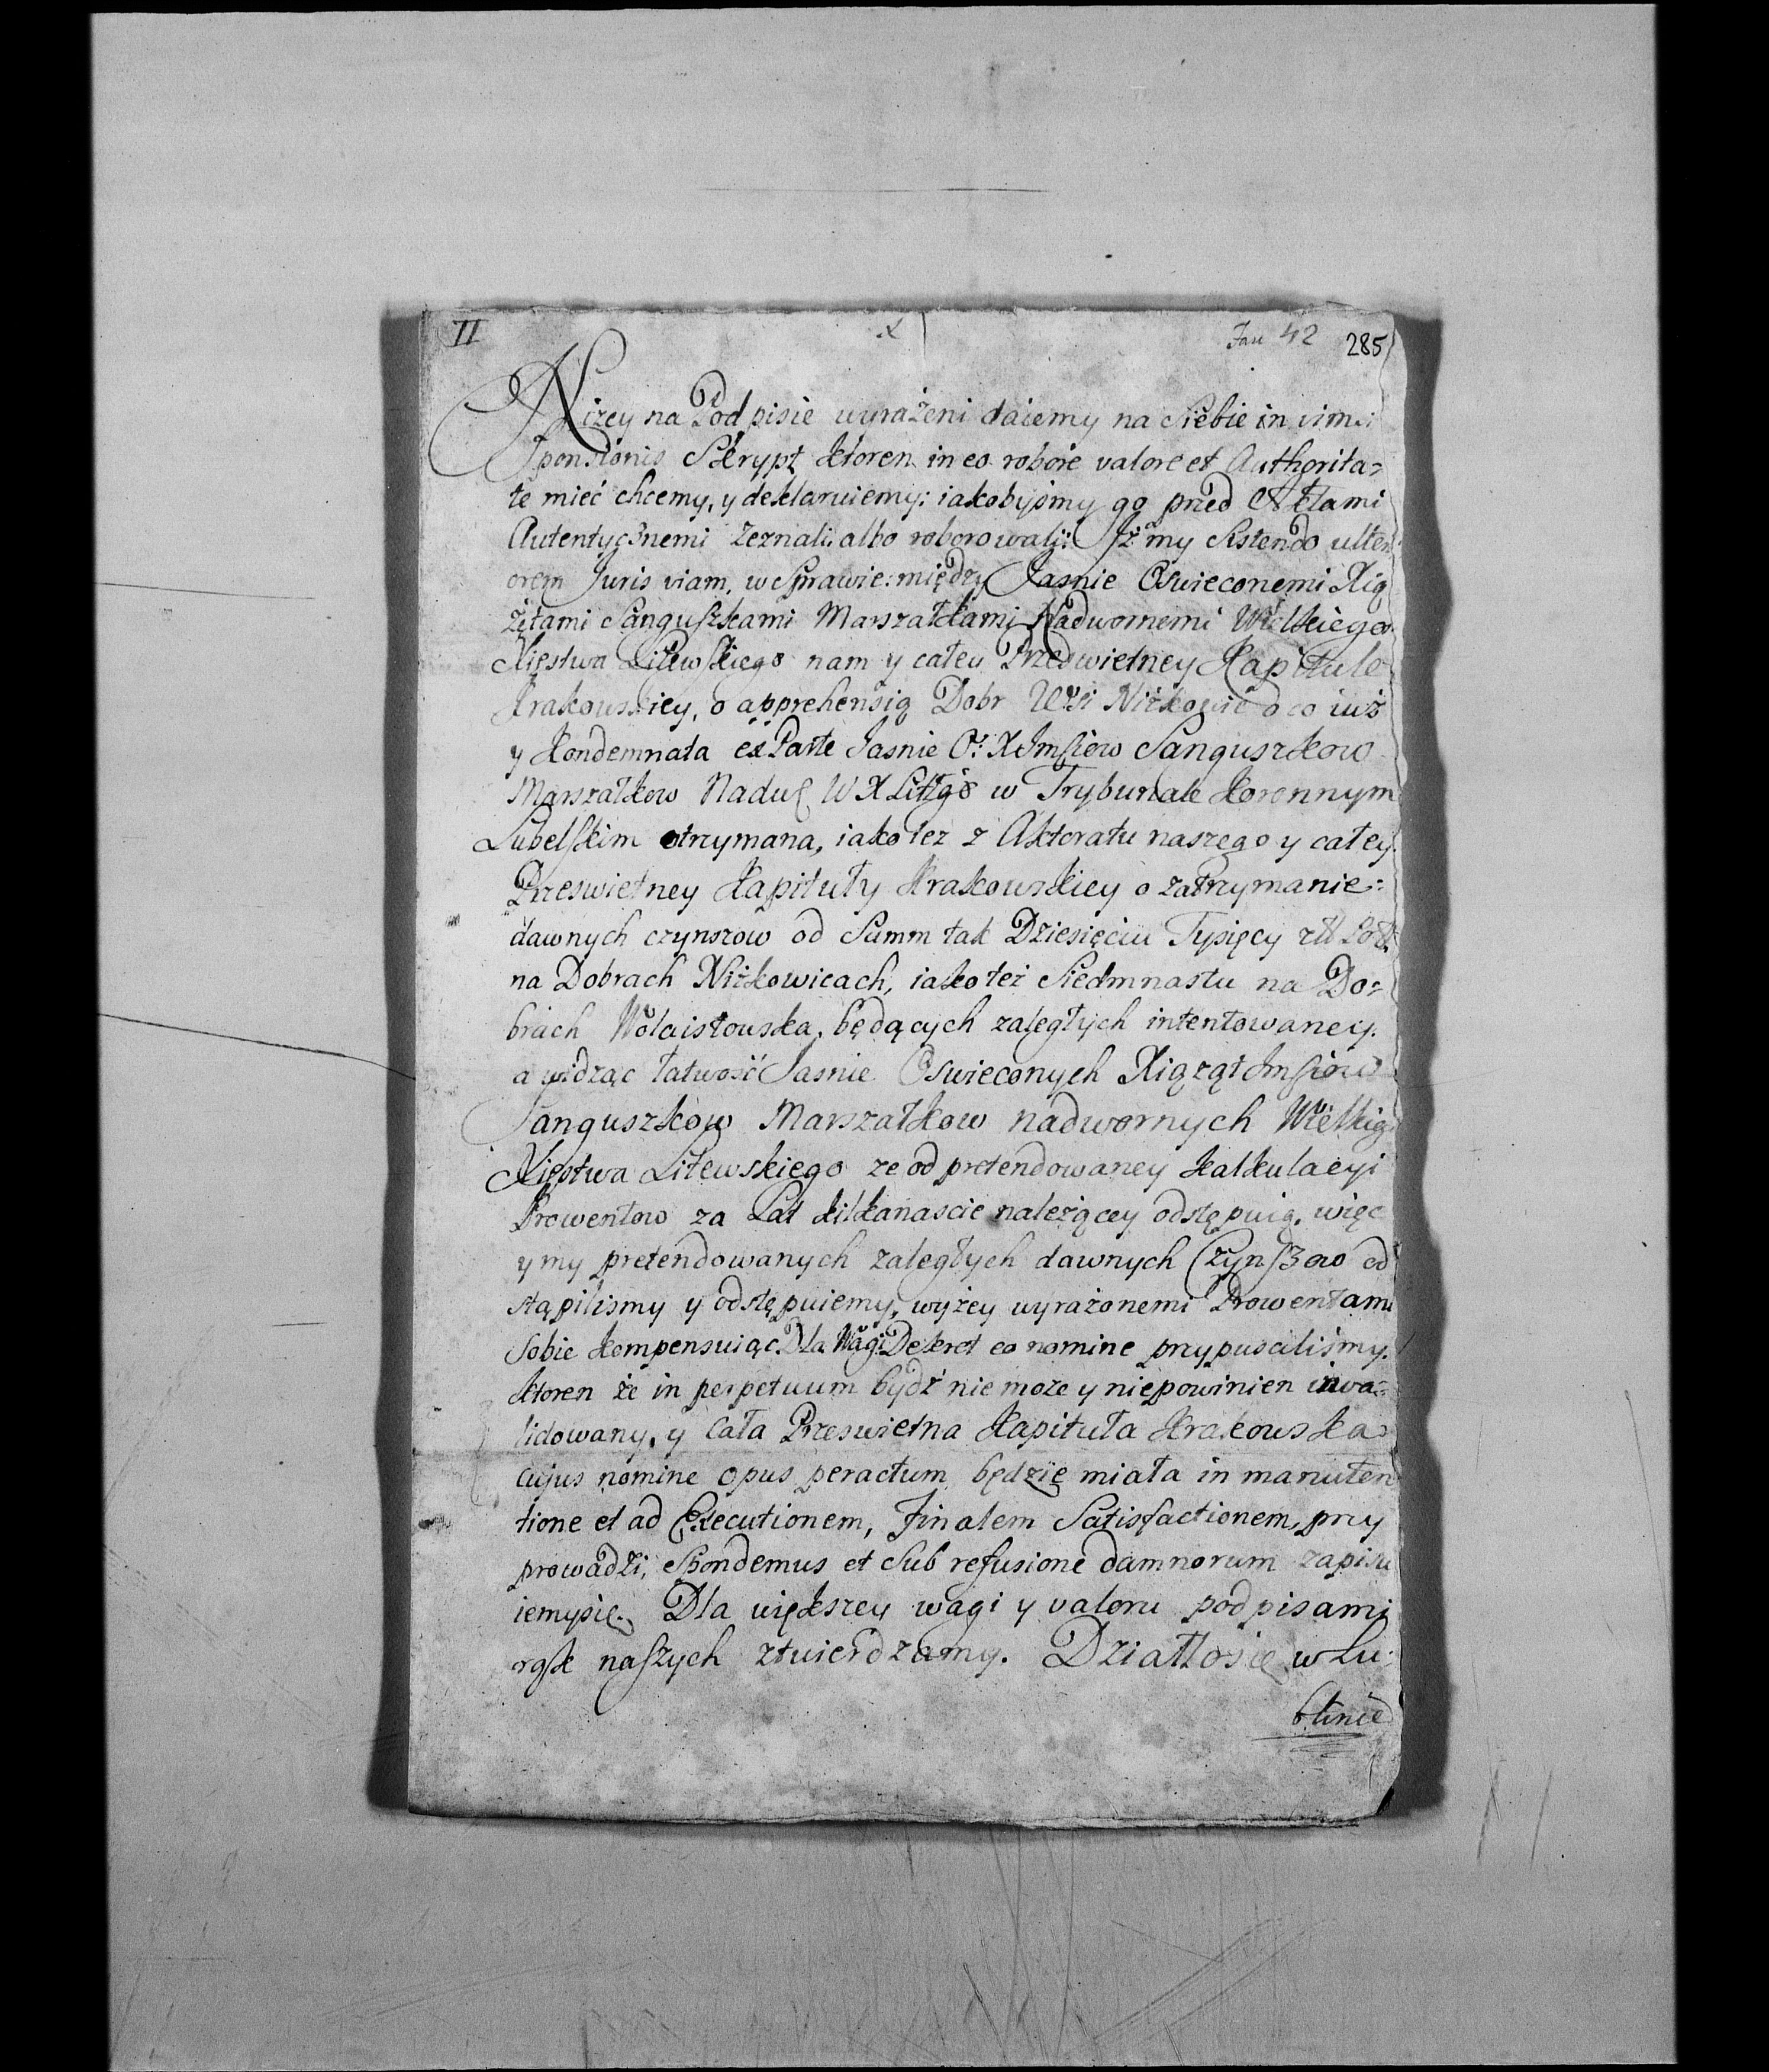 II
x
Jan 42
285
Niżey na Podpisie wyrażeni daiemy na Siebie in vim
Sponsionis Skrypt ktoren in eo robore valore et Authorita=
te mieć chcemy, y deklaruiemy: iakobysmy go przed Aktami
Autentycznemi zeznali albo roborowali: Jż my Sistendo ulteri
orem Juris viam, w Sprawie: między Jasnie Oswieconemi Xią
żętami Sanguszkami Marszałkami Nadwornemi Wielkiego
Xięstwa Litewskiego nam y całey Przeswietney Kapitule
Krakowskiey, o apprehensią Dobr Wsi Niżkowic o co iuż
y Kondemnata ex Parte Jasnie O: X Jmsciow Sanguszkow
Marszałkow Nadw W X Littgo w Trybunale Koronnym
Lubelskim otrzymana, iako tez z Aktoratu naszego y całey
Przeswietney Kapituły Krakowskiey o zatrzymanie=
dawnych czynszow od Summ tak Dziesięciu Tysięcy
na Dobrach Niżkowicach, iako też Siedmnastu na Do=
brach będących zaległych intentowaney.
a widząc łatwość Jasnie Oswieconych Xiążąt Jmsciow
Sanguszkow Marszałkow nadwornych Wielkig
Xięstwa Litewskiego ze od pretendowaney kalkulacyi
Prowentow za Lat kilkanascie należącey odstępuią, więc
y my pretendowanych zaległych dawnych Czynszow od
stąpilismy y odstępuiemy, wyżey wyrażonemi Prowentami
Sobie kompensuiąc. Dla Wagi Dekret eo nomine przypuscilismy.
ktoren że in perpetuum bydź nie może y niepowinien inwa=
lidowany, y Cała Przeswietna Kapituła Krakowska
cujus nomine opus peractum będzie miała in manuten
tione et ad Executionem, Finalem Satisfactionem, przy
prowadzi, Spondemus et Sub refusione damnorum zapisu
iemysię. Dla większey wagi y valoru podpisami
rąk naszych ztwierdzamy. Działłosię w Lu
blinie